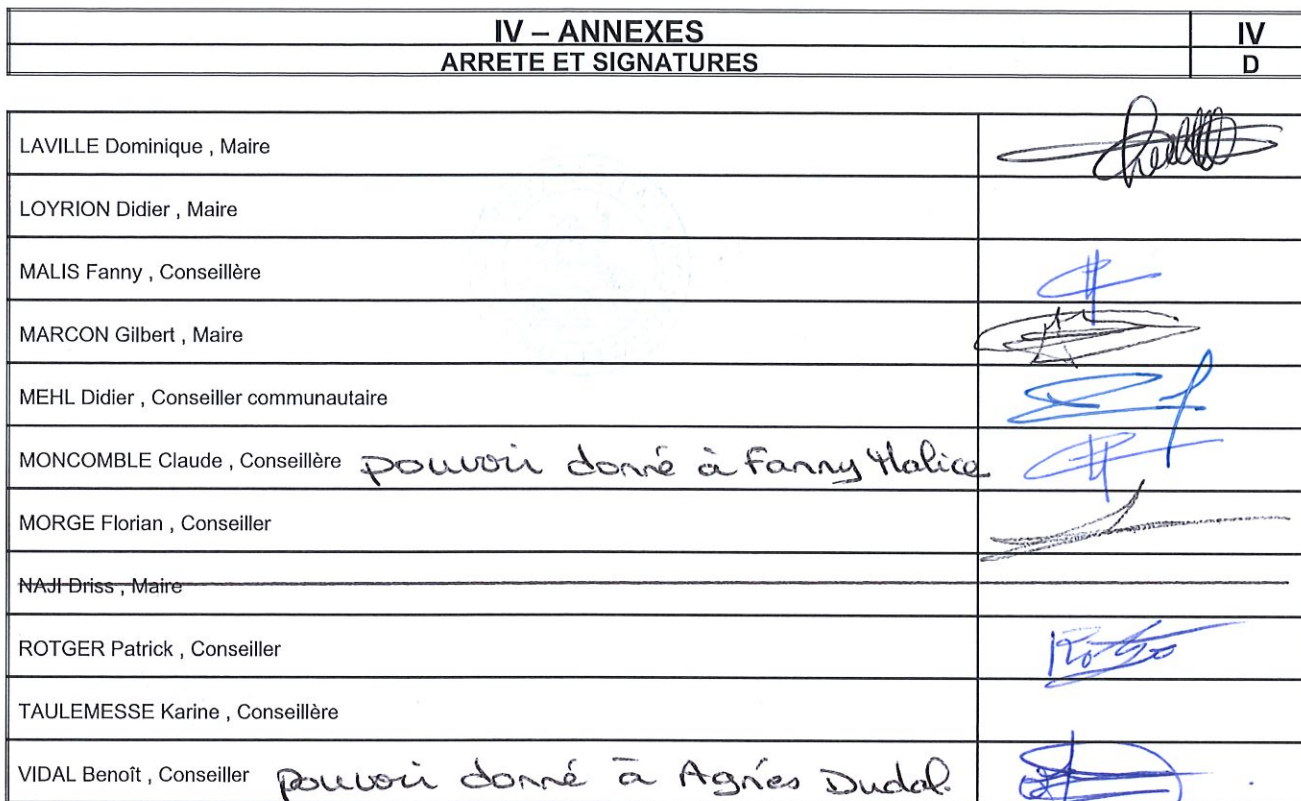 IV – ANNEXES IV
ARRETE ET SIGNATURES D
LAVILLE Dominique , Maire
LOYRION Didier , Maire
MALIS Fanny , Conseillère
MARCON Gilbert , Maire
MEHL Didier , Conseiller communautaire
MONCOMBLE Claude , Conseillère pouvoir donné à Fanny Malice
MORGE Florian , Conseiller
NAJI Driss , Maire
ROTGER Patrick , Conseiller
TAULEMESSE Karine , Conseillère
VIDAL Benoît , Conseiller pouvoir donné à Agnès Dudal.